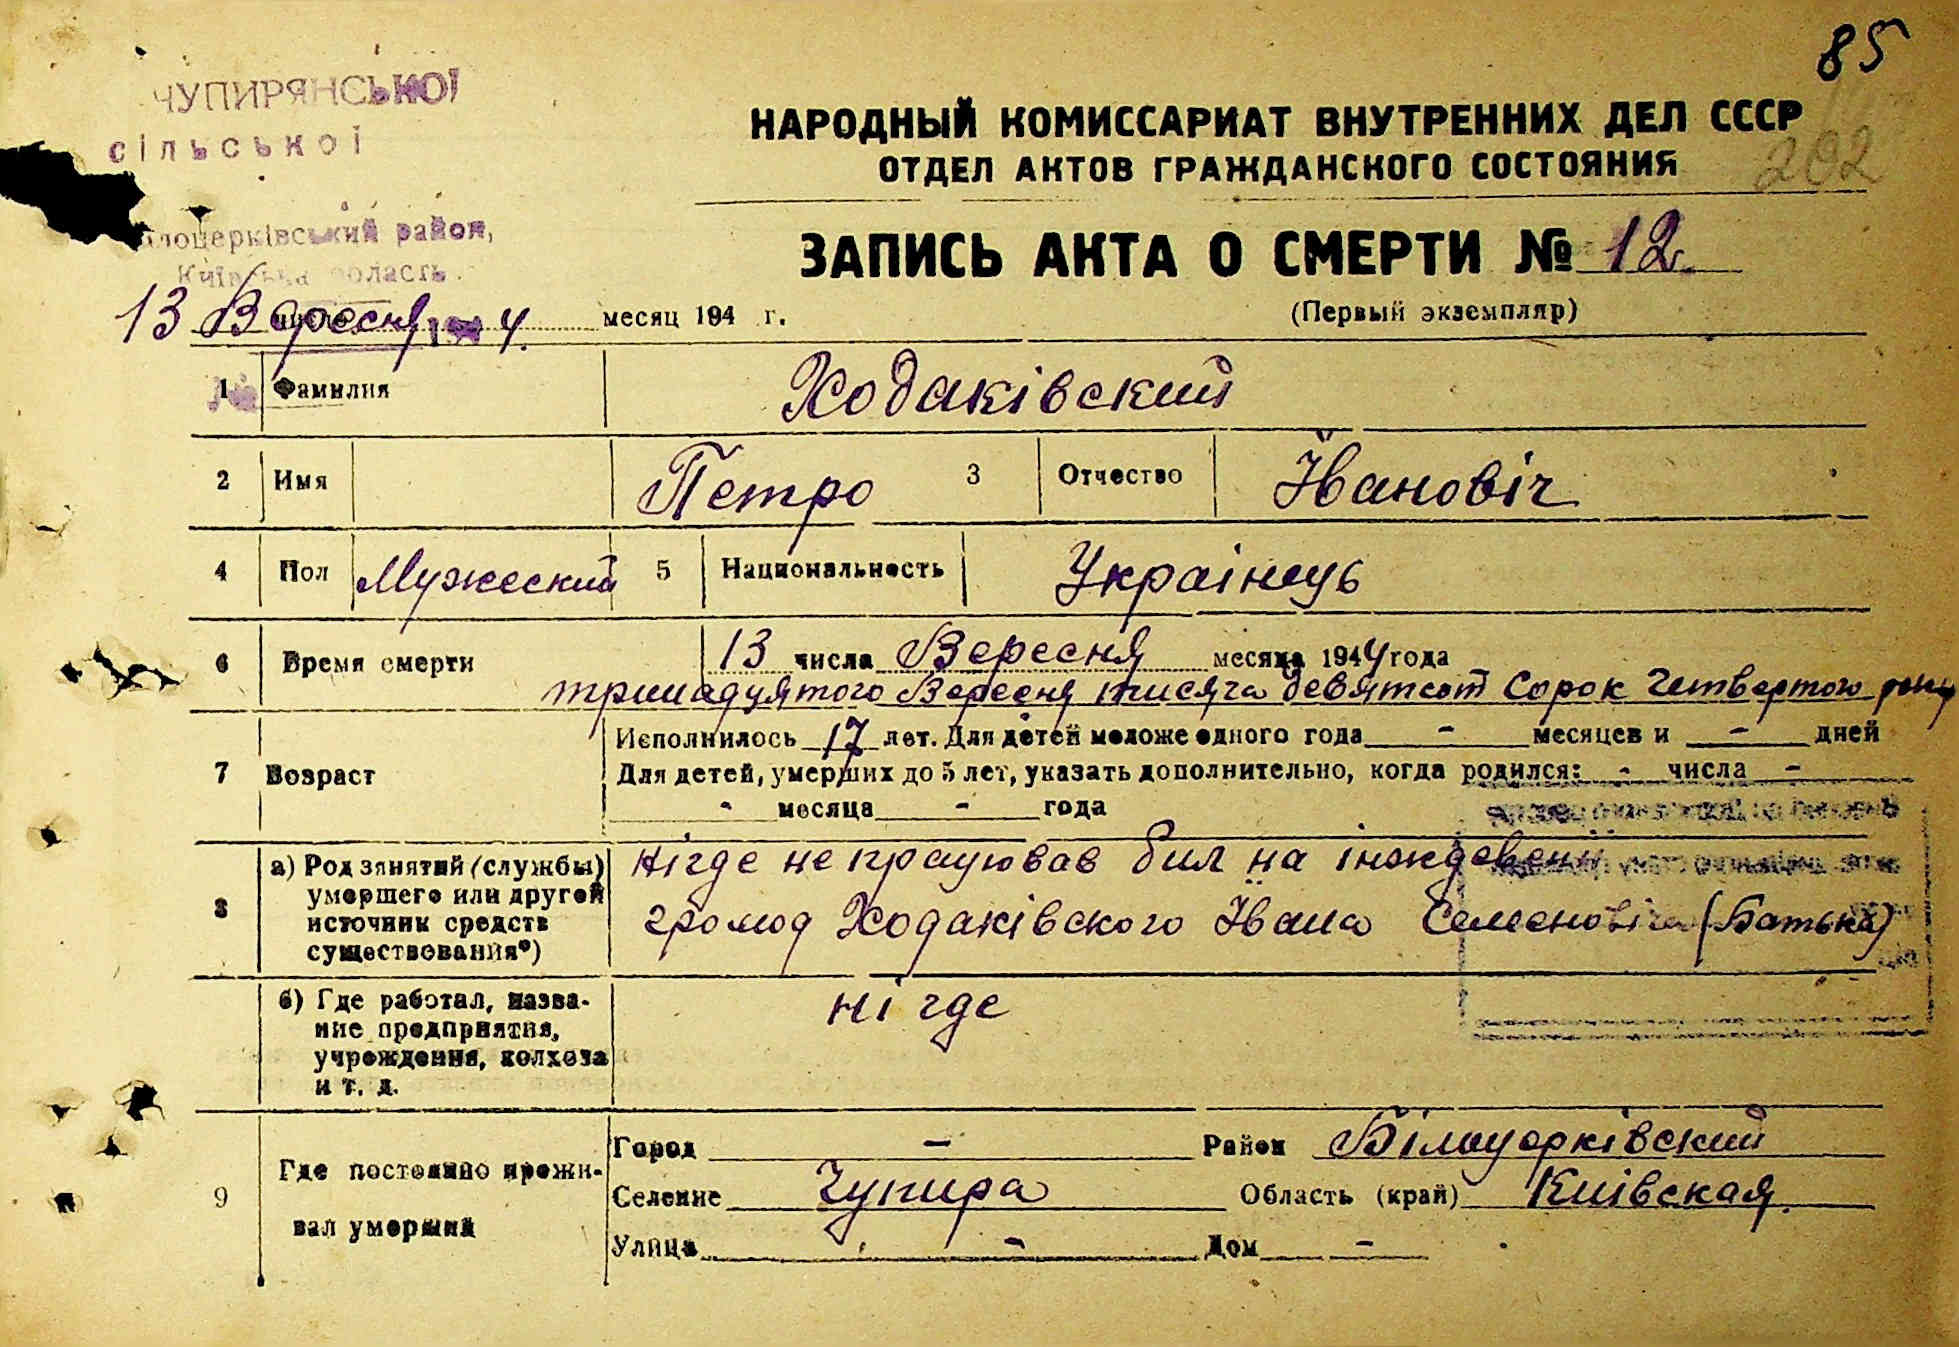 85
ЧУПИРЯНСЬКОЇ
сільської
НАРОДНЫЙ КОМИССАРИАТ ВНУТРЕННИХ ДЕЛ СССР
ОТДЕЛ АКТОВ ГРАЖДАНСКОГО СОСТОЯНИЯ
202
район,
область
ЗАПИСЬ АКТА О СМЕРТИ № 12
(Первый экземпляр)
13 Вересня 4. месяц 194 г.
1 Фамилия Ходаківский
2 Имя Петро 3 Отчество Івановіч
4 Пол Мужеский 5 Национальность Украінець
6 Время смерти 13 числа Вересня месяца 1944 года
тринадцятого Вересня тисяча девятсот Сорок Четвертого року
Исполнилось 17 лет. Для детей моложе одного года - месяцев и - дней
7 Возраст Для детей, умерших до 5 лет, указать дополнительно, когда родился: - числа -
- месяца - года
8 а) Род занятий (службы) умершего или другой источник средств существования*)
нігде не працював бил на
громод Ходаківского Івана Семеновіча (Батька)
б) Где работал, название предприятия, учреждения, колхоза и т. д.
нігде
9 Где постоянно проживал умерший
Город - Район Білоцерківский
Селение Чупира Область (край) Киівская
Улица - Дом -